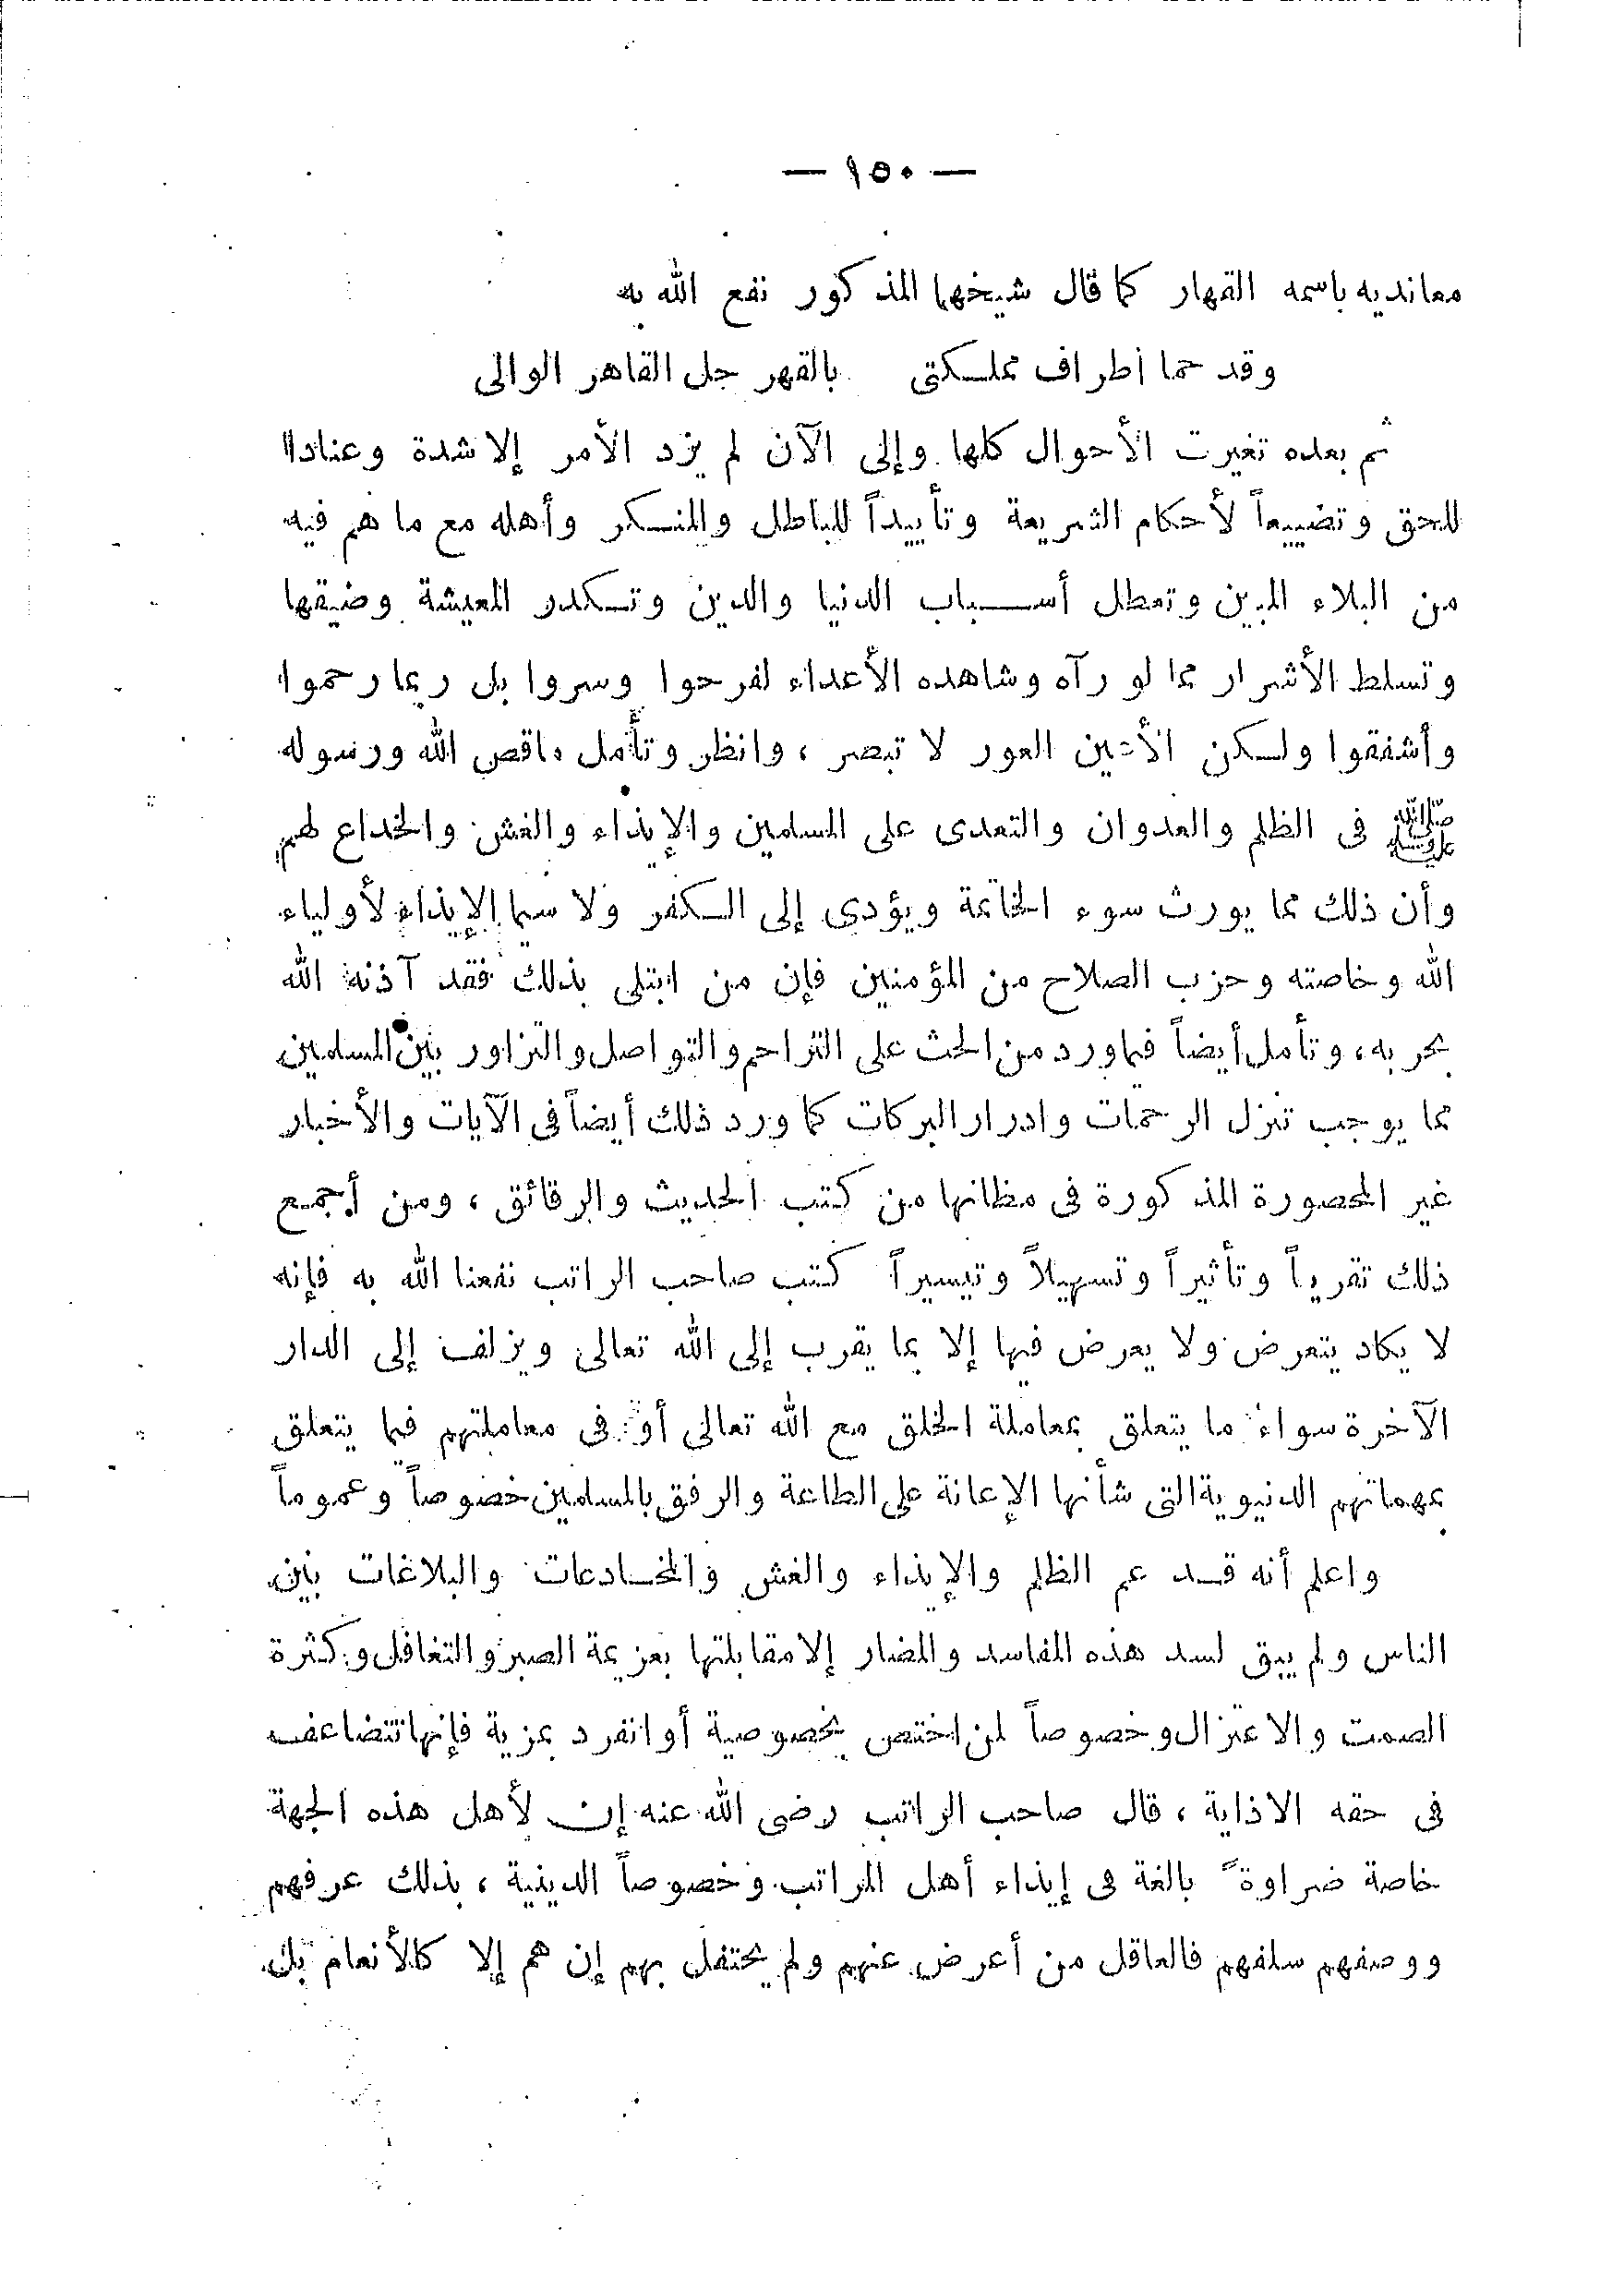 — ١٥٠ —
معانديه باسمه القهار كما قال شيخها المذكور نفع الله به
وقد حما أطراف مملكتى بالقهر جل القاهر الوالى
ثم بعده تغيرت الأحوال كلها وإلى الآن لم يزد الأمر إلا شدة وعنادا
للحق وتضييعاً لأحكام الشريعة وتأييداً للباطل والمنكر وأهله مع ما هم فيه
من البلاء المبين وتعطل أسباب الدنيا والدين وتكدر المعيشة وضيقها
وتسلط الأشرار مما لو رآه وشاهده الأعداء لفرحوا وسروا بل ربما رحموا
وأشفقوا ولكن الأعين العور لا تبصر ، وانظر وتأمل ماقص الله ورسوله
ﷺ فى الظلم والعدوان والتعدى على المسلمين والإيذاء والغش والخداع لهم
وأن ذلك مما يورث سوء الخاتمة ويؤدى إلى الكفر ولا سيما الإيذاء لأولياء
الله وخاصته وحزب الصلاح من المؤمنين فإن من ابتلى بذلك فقد آذنه الله
بحربه، وتأمل أيضاً فيما ورد من الحث على التراحم والتواصل والتزاور بين المسلمين
مما يوجب تنزل الرحمات وادرار البركات كما ورد ذلك أيضاً فى الآيات والأخبار
غير المحصورة المذكورة فى مظانها من كتب الحديث والرقائق ، ومن أجمع
ذلك تقريباً وتأثيراً وتسهيلاً وتيسيراً كتب صاحب الراتب نفعنا الله به فإنه
لا يكاد يتعرض ولا يعرض فيها إلا بما يقرب إلى الله تعالى ويزلف إلى الدار
الآخرة سواء ما يتعلق بمعاملة الخلق مع الله تعالى أو فى معاملتهم فيما يتعلق
بمهماتهم الدنيوية التى شأنها الإعانة على الطاعة والرفق بالمسلمين خصوصاً وعموماً
واعلم أنه قد عم الظلم والإيذاء والغش والمخادعات والبلاغات بين
الناس ولم يبق لسد هذه المفاسد والمضار إلا مقابلتها بعزيمة الصبر والتغافل وكثرة
الصمت والاعتزال وخصوصاً لمن اختص بخصوصية أو انفرد بمزية فإنها تتضاعف
فى حقه الاذاية ، قال صاحب الراتب رضى الله عنه إن لأهل هذه الجهة
خاصة ضراوةً بالغة فى إيذاء أهل المراتب وخصوصاً الدينية ، بذلك عرفهم
ووصفهم سلفهم فالعاقل من أعرض عنهم ولم يحتفل بهم إن هم إلا كالأنعام بل